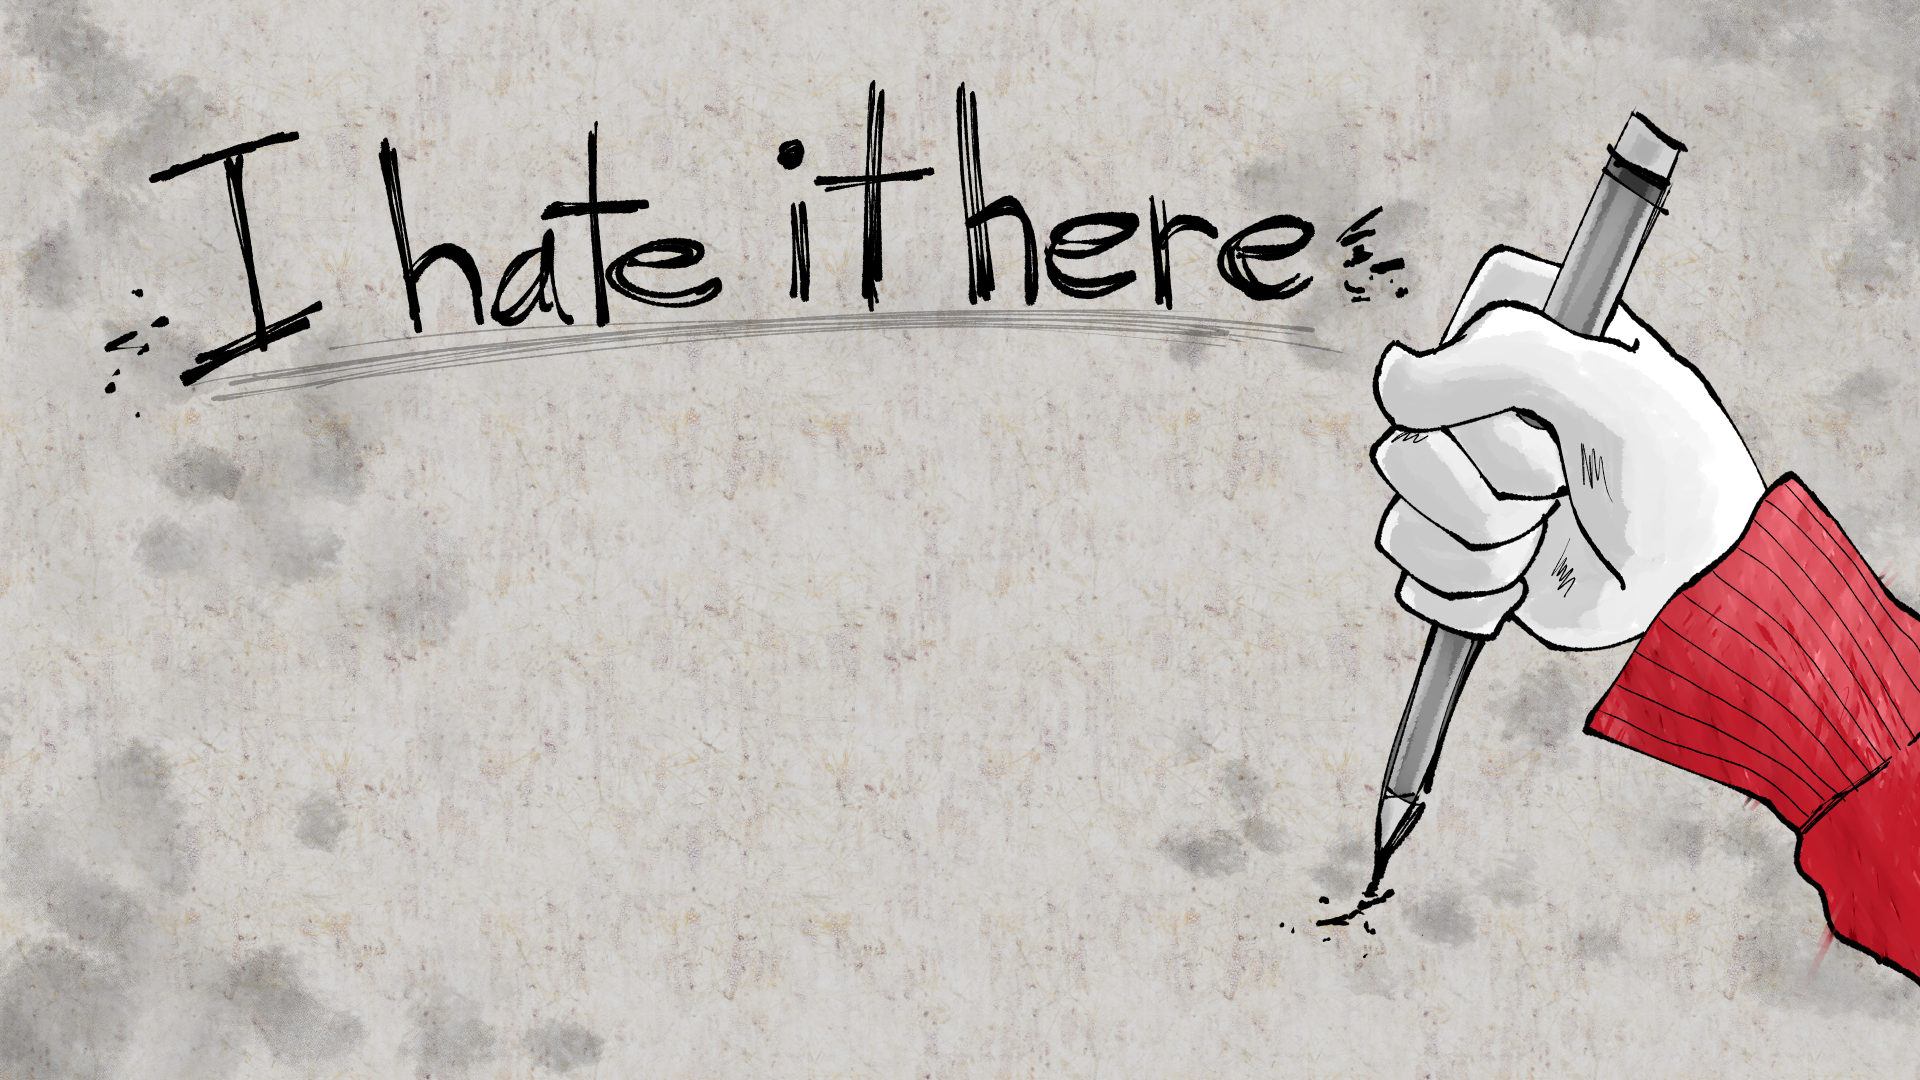 I hate it here